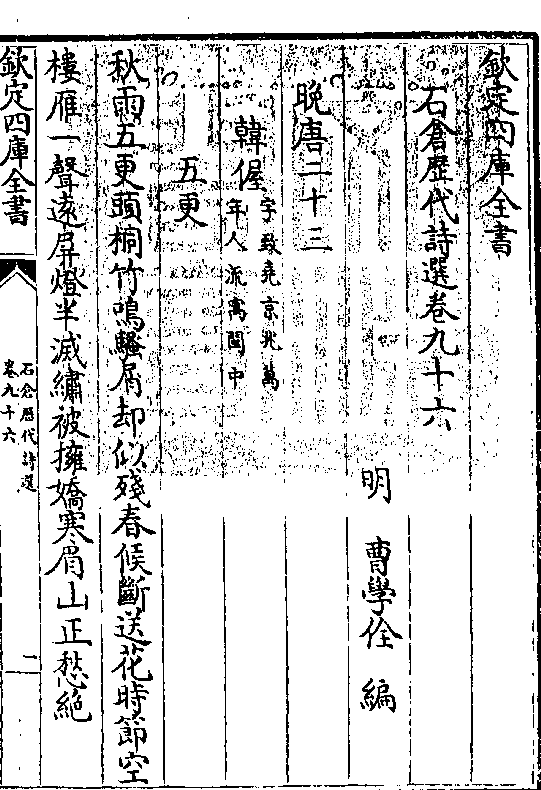 欽定四庫全書
石倉歷代詩選卷九十六
明 曹學佺 編
晚唐二十三
韓偓 字致堯京兆萬
年人流寓閩中
五更
秋雨五更頭桐竹鳴騷屑却似殘春候斷送花時節空
樓雁一聲遠屏燈半滅繡被擁嬌寒眉山正愁絶
欽定四庫全書
石倉歷代詩選
卷九十六
一